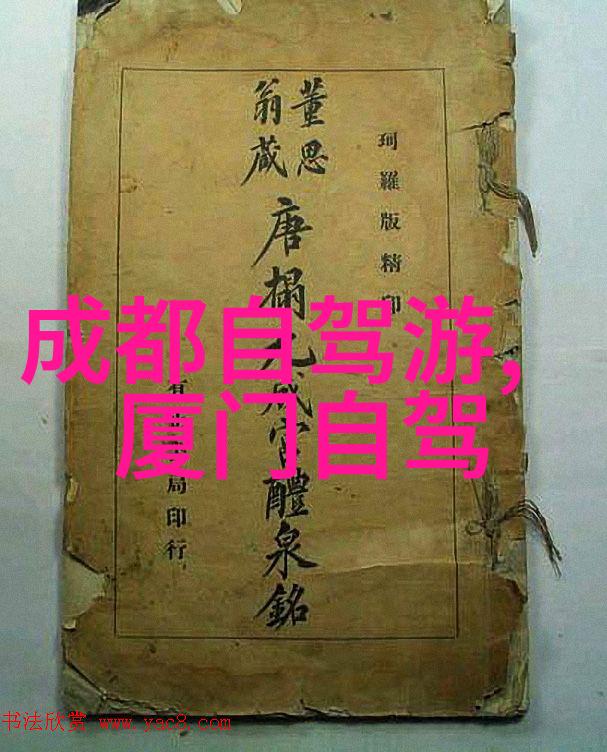 珂羅版精印
董思
翁藏
唐榻九成宮醴泉銘
局印行
成都自驾游,
厦门自驾
书法欣赏 www.yac8.com